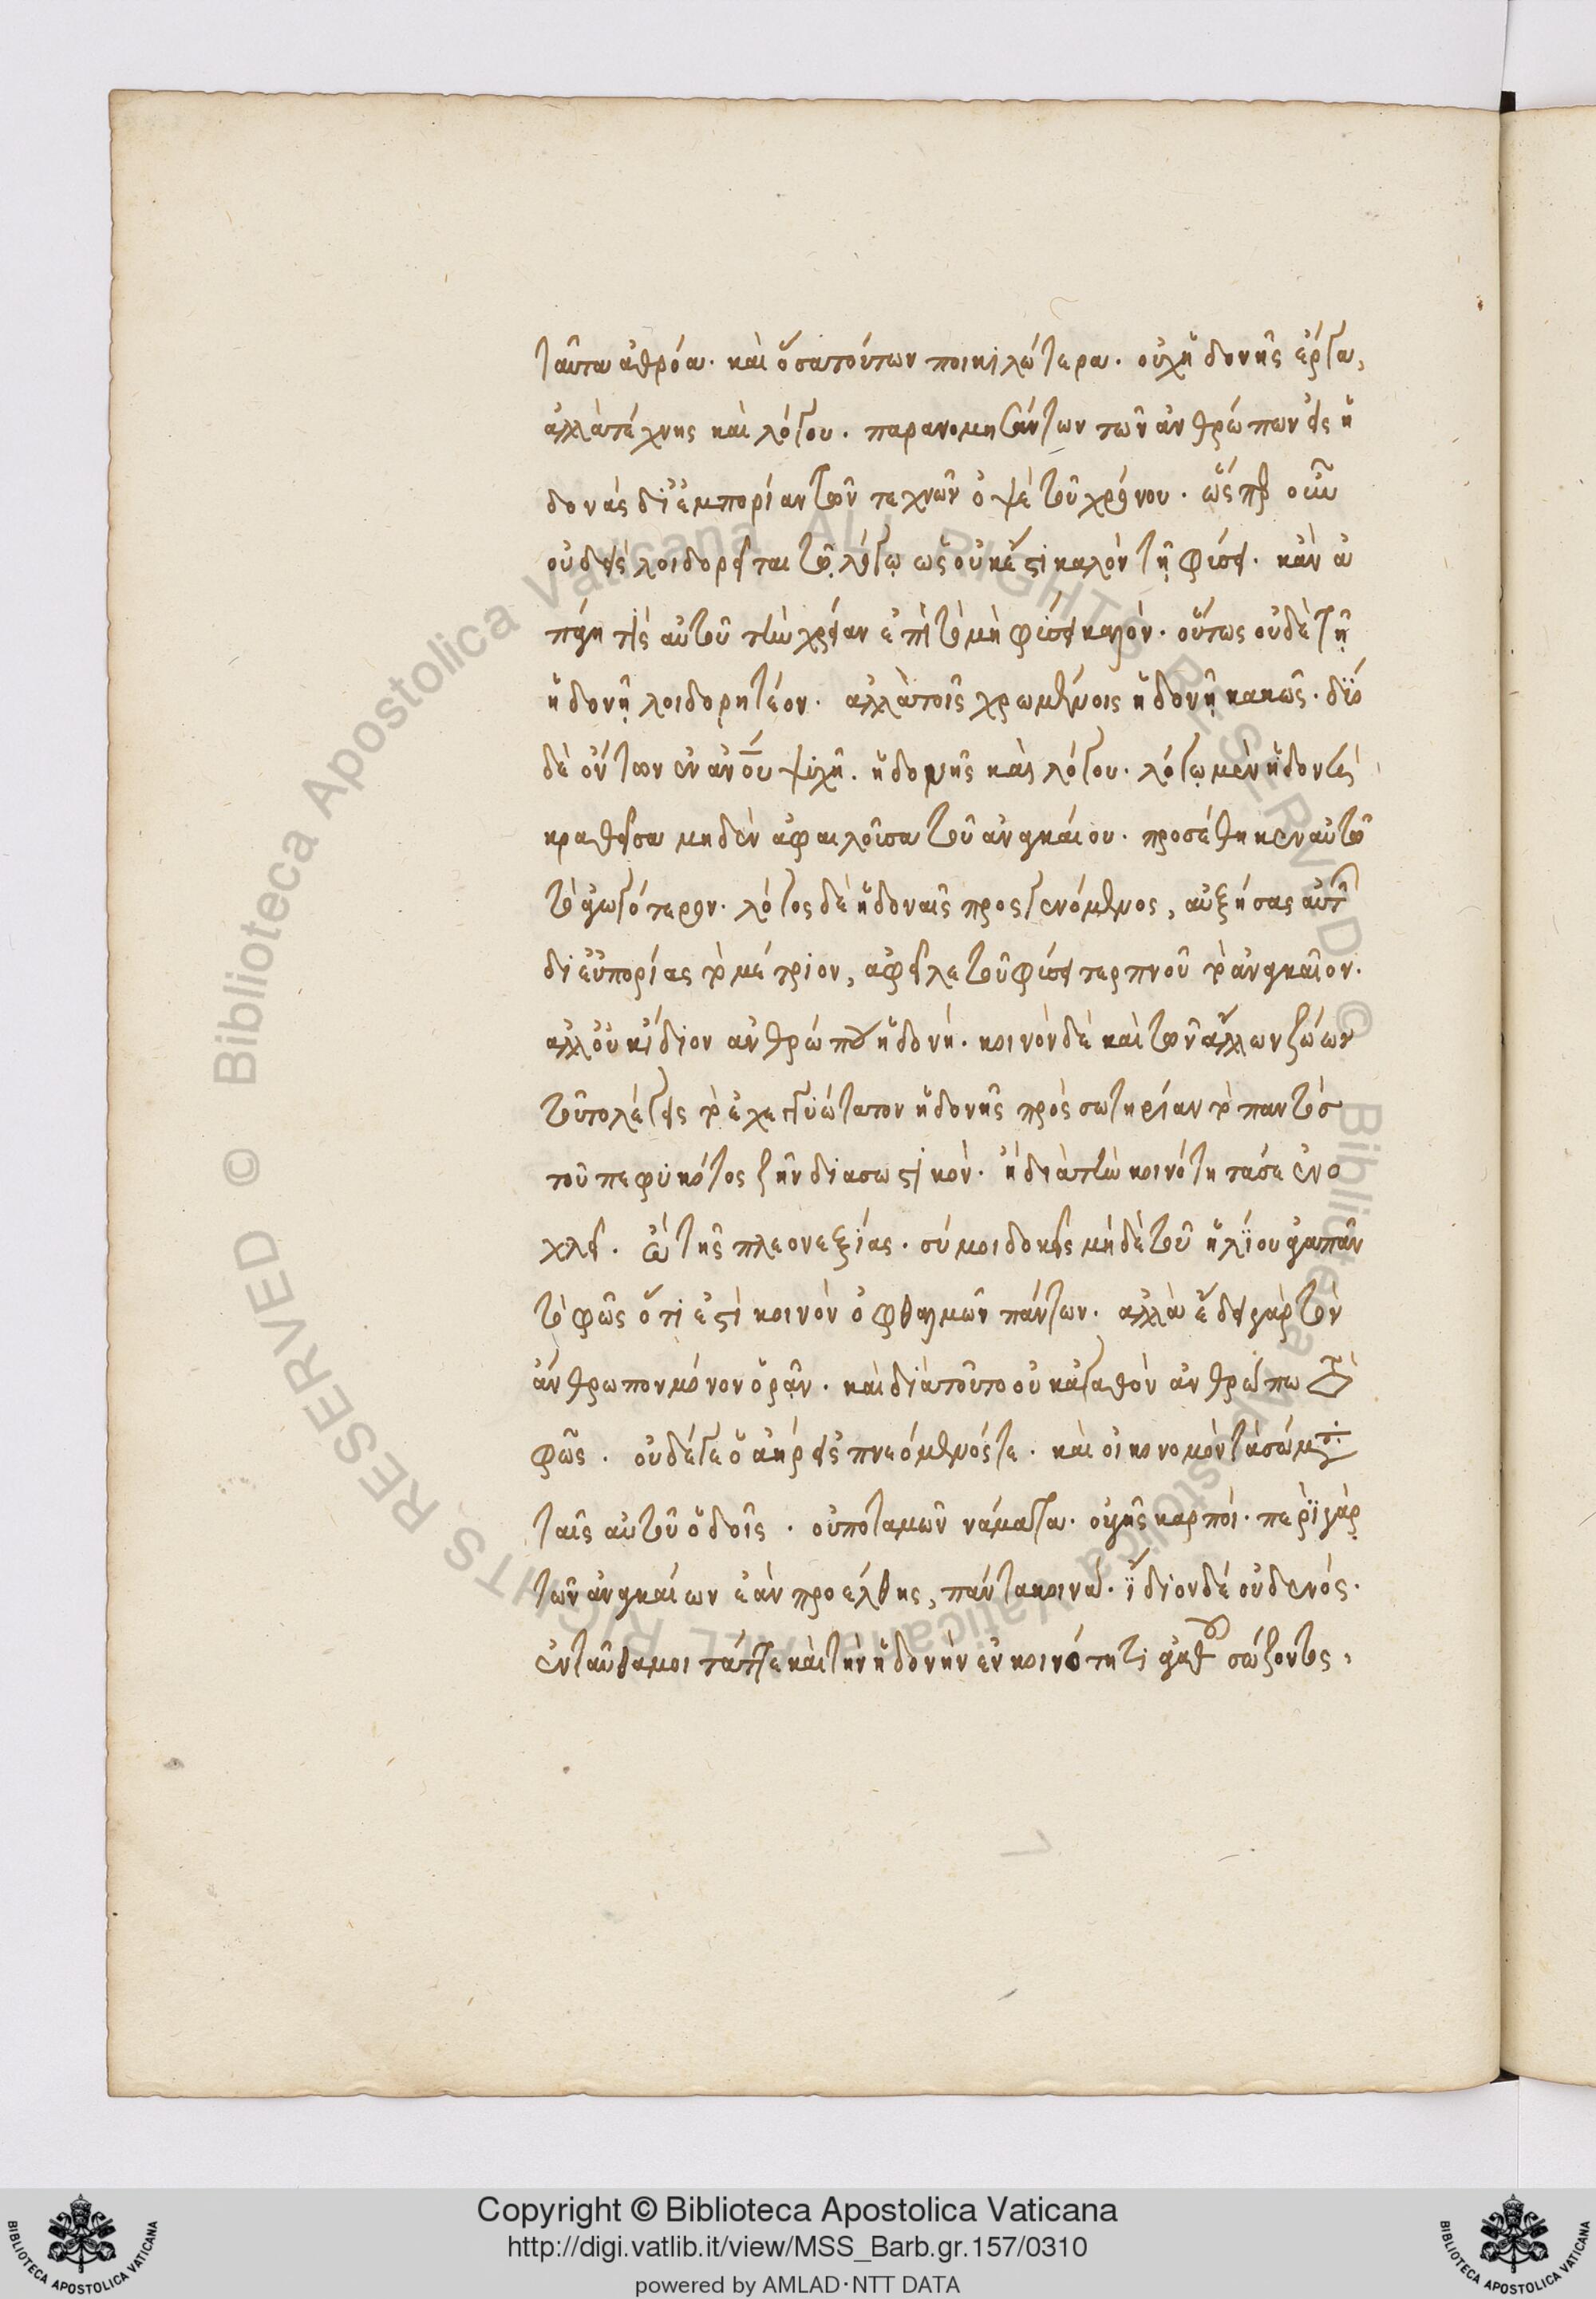 ταῦτα ἀθρόα. καὶ ὅσα τούτων ποικιλώτερα. οὐχ ἡδονῆς ἔργα,
ἀλλὰ τέχνης καὶ λόγου. παρανομησάντων τῶν ἀνθρώπων εἰς ἡ
δονὰς δι' ἐμπορίαν τῶν τεχνῶν ὀψὲ τοῦ χρόνου. ὥσπερ οὖν
οὐδεὶς λοιδορεῖται τῷ λόγῳ ὡς οὐκ ἔστι καλὸν τῇ φύσει. κἂν ἀ
πάγῃ τὶς αὐτοῦ τὴν χρείαν ἐπὶ τὸ μὴ φύσει καλόν. οὕτως οὐδὲ τῇ
ἡδονῇ λοιδορητέον. ἀλλὰ τοῖς χρωμένοις ἡδονῇ κακῶς. δυὸ
δὲ ὄντων ἐν ἀνου ψυχῇ. ἡδονῆς καὶ λόγου. λόγῳ μὲν ἡδονὴ
κραθεῖσα μηδὲν ἀφαιλοῦσα τοῦ ἀναγκαίου. προσέθηκεν αὐτῷ
τὸ ἀγωγότερον. λόγος δὲ ἡδοναῖς προσγενόμενος, αὐξήσας αὐτῶν
δι' εὐπορίας τὸ μέτριον, ἀφεῖλε τοῦ φύσει τερπνοῦ τὸ ἀναγκαῖον.
ἀλλ' οὐκ ἴδιον ἀνθρώπου ἡδονή. κοινὸν δὲ καὶ τῶν ἄλλων ζώων
τοῦτο λέγεις τὸ ἐχεγγυώτατον ἡδονῆς πρὸς σωτηρίαν τὸ παντὸσ
τοῦ πεφυκότος ζῆν διασωστικόν. ἢ διὰ τὴν κοινότητά σε ἐνο
χλεῖ. ὢ τῆς πλεονεξίας. σύ μοι δοκεῖς μὴ δὲ τοῦ ἡλίου ἀγαπᾶν
τὸ φῶς ὅτι ἐστὶ κοινὸν ὀφθαλμῶν πάντων. ἀλλὰ ἔδει γὰρ τὸν
ἄνθρωπον μόνον ὁρᾷν. καὶ διὰ τοῦτο οὐκ ἀγαθὸν ἀνθρώπω τὸ
φῶς. οὐδέ γε ὁ ἀὴρ εἰσπνεόμενός τε. καὶ οἰκονομὸν τὰ σώματα
ταῖς αὐτοῦ ὁδοῖς. οὐ ποταμῶν νάματα. οὐ γῆς καρποί. περὶ γὰρ
τῶν ἀναγκαίων ἐὰν προέλθῃς, πάντα κοινά. ἴδιον δὲ οὐδενός.
ἐνταῦθα μοι τάττε καὶ τὴν ἡδονὴν ἐν κοινότητι ἀγαθοῦ σώζοντος,
Copyright © Biblioteca Apostolica Vaticana
http://digi.vatlib.it/view/MSS_Barb.gr.157/0310
powered by AMLAD·NTT DATA
BIBLIOTECA APOSTOLICA VATICANA
BIBLIOTECA APOSTOLICA VATICANA
© Biblioteca Apostolica Vaticana ALL RIGHTS RESERVED
© Biblioteca Apostolica Vaticana ALL RIGHTS RESERVED